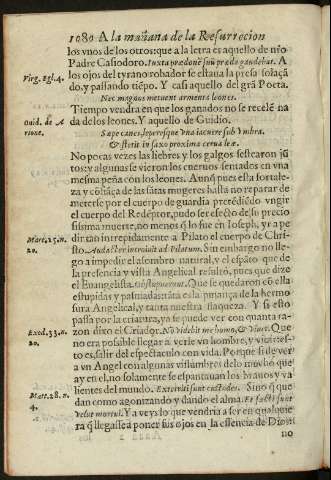 1080 A la mañana de la Resurrecion
los vnos de los otros: que a la letra es aquello de nr̃o
Padre Casiodoro. Iuxta prædonẽ suũ præda gaudebat. A
Virg. Egl. 4.
los ojos del tyrano robador se estaua la presa solaçã
do, y passando tiẽpo. Y casi aquello del grã Poeta.
Nec magnos metuent armenta leones.
Tiempo vendra en que los ganados no se recelẽ na
Ouid. de Arione.
da de los leones. Y aquello de Ouidio.
Sæpe canes, leporesque vna iacuere sub vmbra.
& stetit in saxo proxima cerua leæ.
No pocas vezes las liebres y los galgos sestearon jũ
tos: y algunas se vieron los cueruos sentados en vna
mesma peña con los leones. Aunq̃ pues esta fortale-
za y costãça de las sãtas mugeres hasta no reparar de
meterse por el cuerpo de guardia pretẽdiẽdo vngir
el cuerpo del Redẽptor, pudo ser efecto de su precio
sissima muerte, no menos q̃ lo fue en Ioseph, yr a pe
dir tan intrepidamente a Pilato el cuerpo de Chri-
Marc. 15. n. 20.
sto. Audacter introiuit ad Pilatum. Sin embargo no lle-
go a impedir el asombro natural, y el espãto que de
la presencia y vista Angelical resultò, pues que dize
el Euangelista. Obstupuerunt. Que se quedaron cõ esta
estupidas y pasmadas ante la pujança de la hermo
sura Angelical, y tanta nuestra flaqueza. Y si esto
passa por la criatura, ya se puede ver con quanta ra-
Exod. 33. n. 20.
zon dixo el Criador. Nõ videbit me homo, & viuet. Que
no era posible llegar a verle vn hombre, y
to es, salir del espectaculo con vida. Porque si de ver
a vn Angel con algunas vislumbres de lo mucho que
ay en el, no solamente se espantauan los brauos y va
lientes del mundo. Exterriti sunt custodes. Sino q̃ que
Matt. 28. n. 4.
dan como agonizando y dando el alma. Et facti sunt
velut mortui. Y a veys lo que vendria a ser en qualquie
ra q̃ llegasse a poner sus ojos en la essencia de Dios:
no